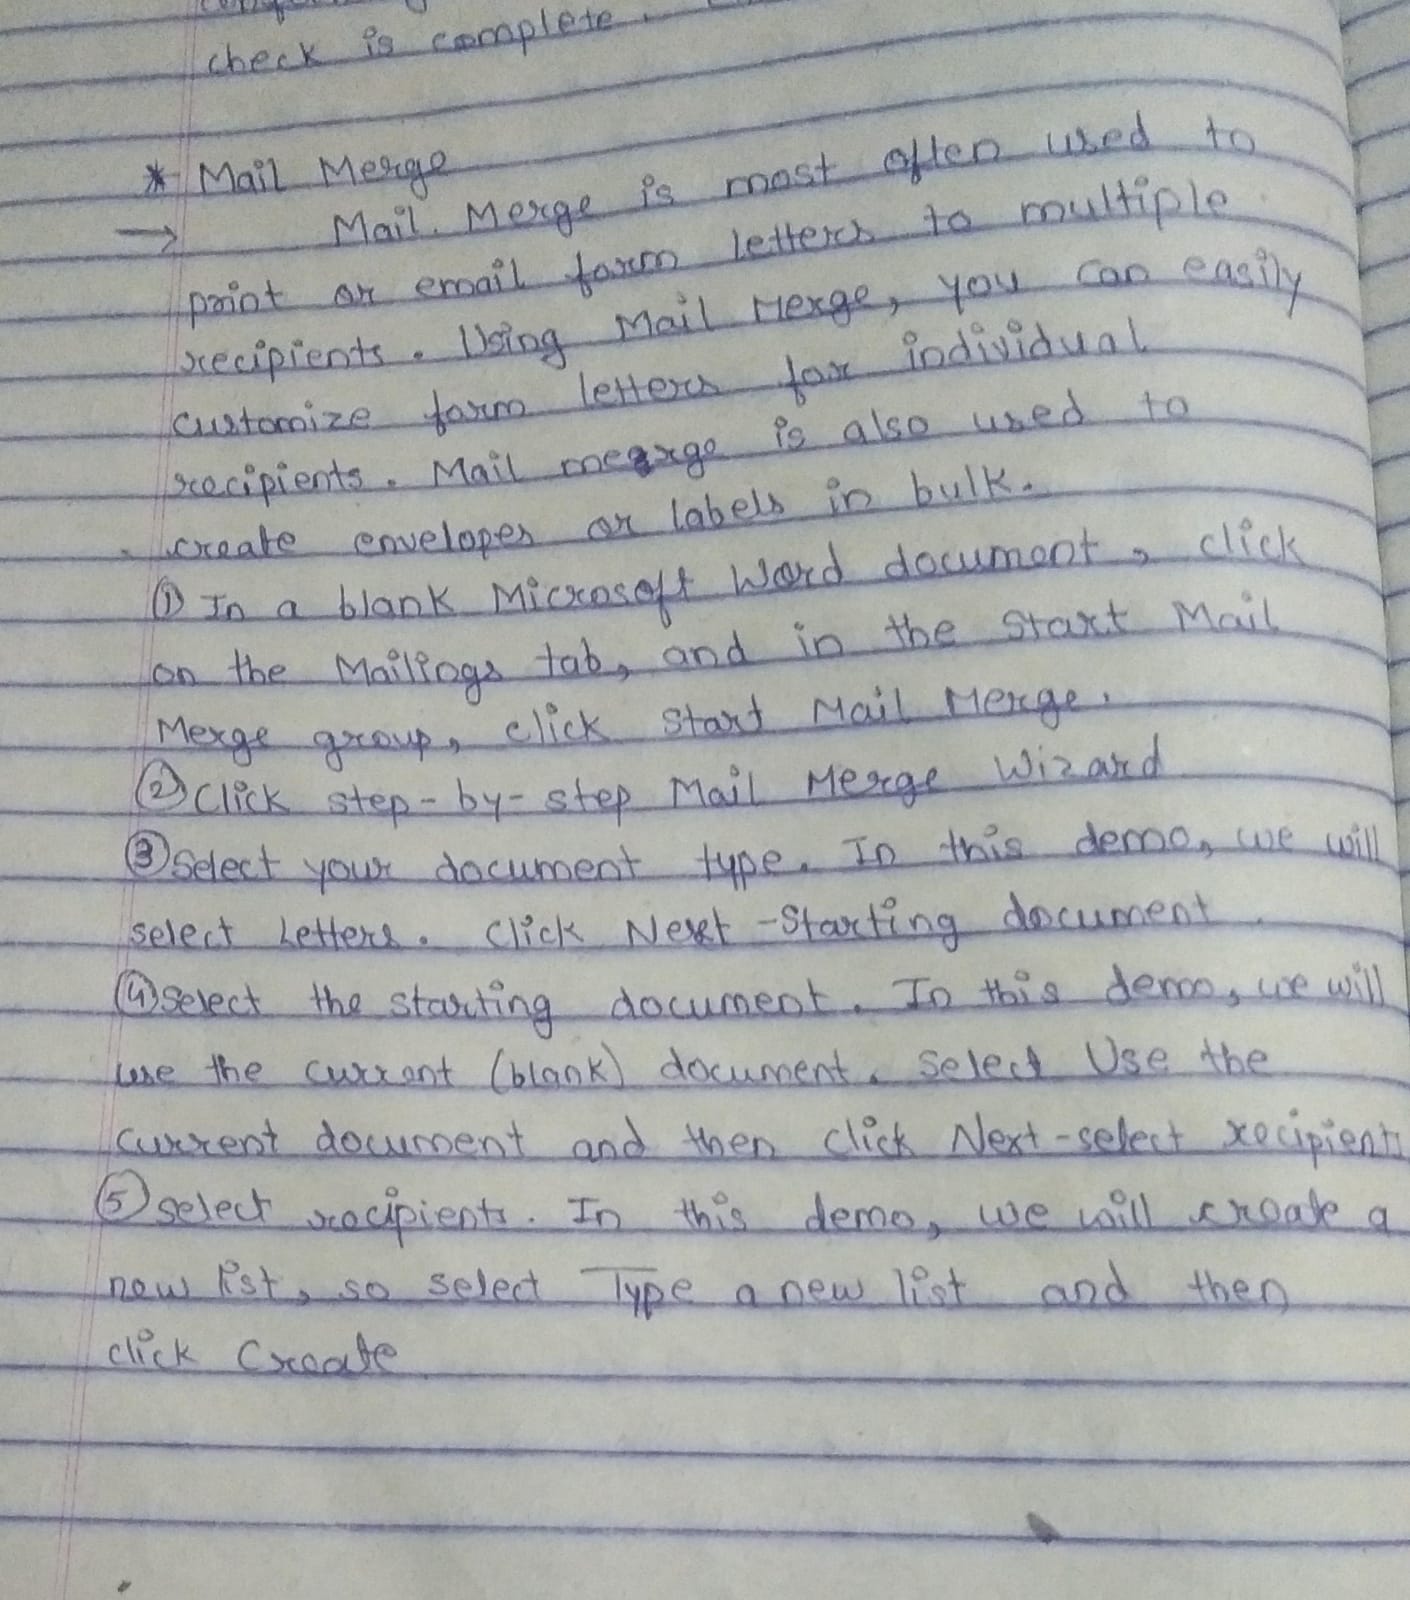 check is complete.
* Mail Merge
→ Mail Merge is most often used to
print or email form letters to multiple
recipients. Using Mail Merge, you can easily
customize form letters for individual
recipients. Mail merge is also used to
create envelopes or labels in bulk.
① In a blank Microsoft Word document, click
on the Mailings tab, and in the Start Mail
Merge group, click Start Mail Merge.
② Click step-by-step Mail Merge Wizard
③ Select your document type. In this demo, we will
select Letters. Click Next -Starting document
④ Select the starting document. In this demo, we will
use the current (blank) document. Select Use the
current document and then click Next-select recipients
⑤ select recipients. In this demo, we will create a
new list, so select Type a new list and then
click Create